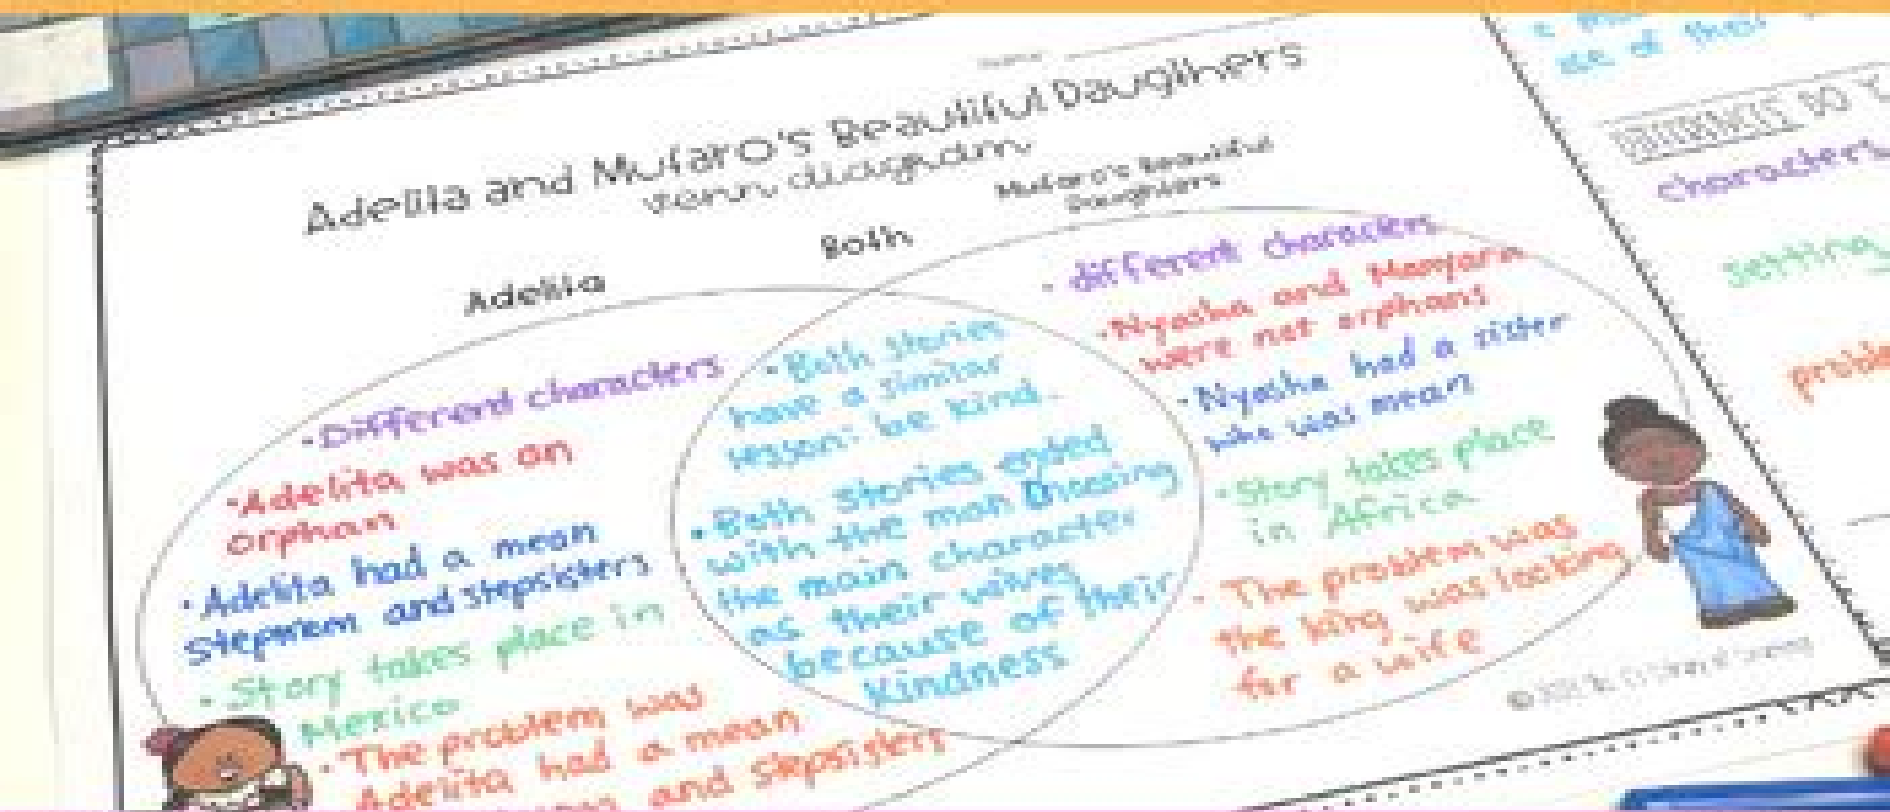 Adelita and Mufaro's Beautiful Daugthers
venn diagram
Adelita
Both
Mufaro's Beautiful
Daughters
•Different characters
•Adelita was an
orphan
•Adelita had a mean
stepmom and stepsisters
•Story takes place in
Mexico
•The problem was
Adelita had a mean
and stepsisters
•Both stories
have a similar
lesson: be kind.
•Both stories ended
with the man choosing
the main character
as their wives
because of their
kindness
•different characters
•Nyasha and Manyara
were not orphans
•Nyasha had a sister
who was mean
•Story takes place
in Africa
•The problem was
the king was looking
for a wife
characters
setting